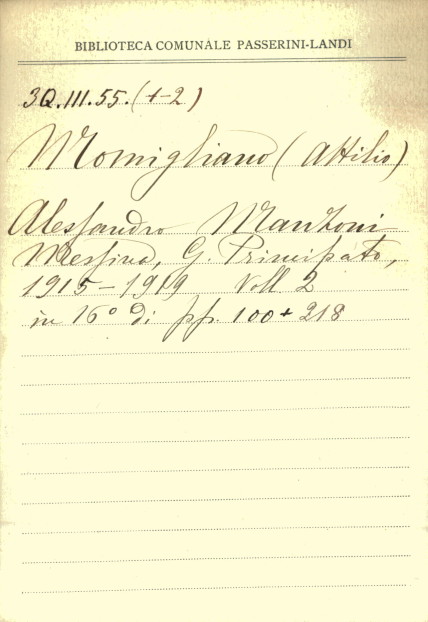 BIBLIOTECA COMUNALE PASSERINI-LANDI
3Q.III.55.(1-2)
Momigliano (Attilio)
Alessandro Manzoni
Messina, G. Principato,
1915-1919 Voll 2
in 16° di pp. 100+218